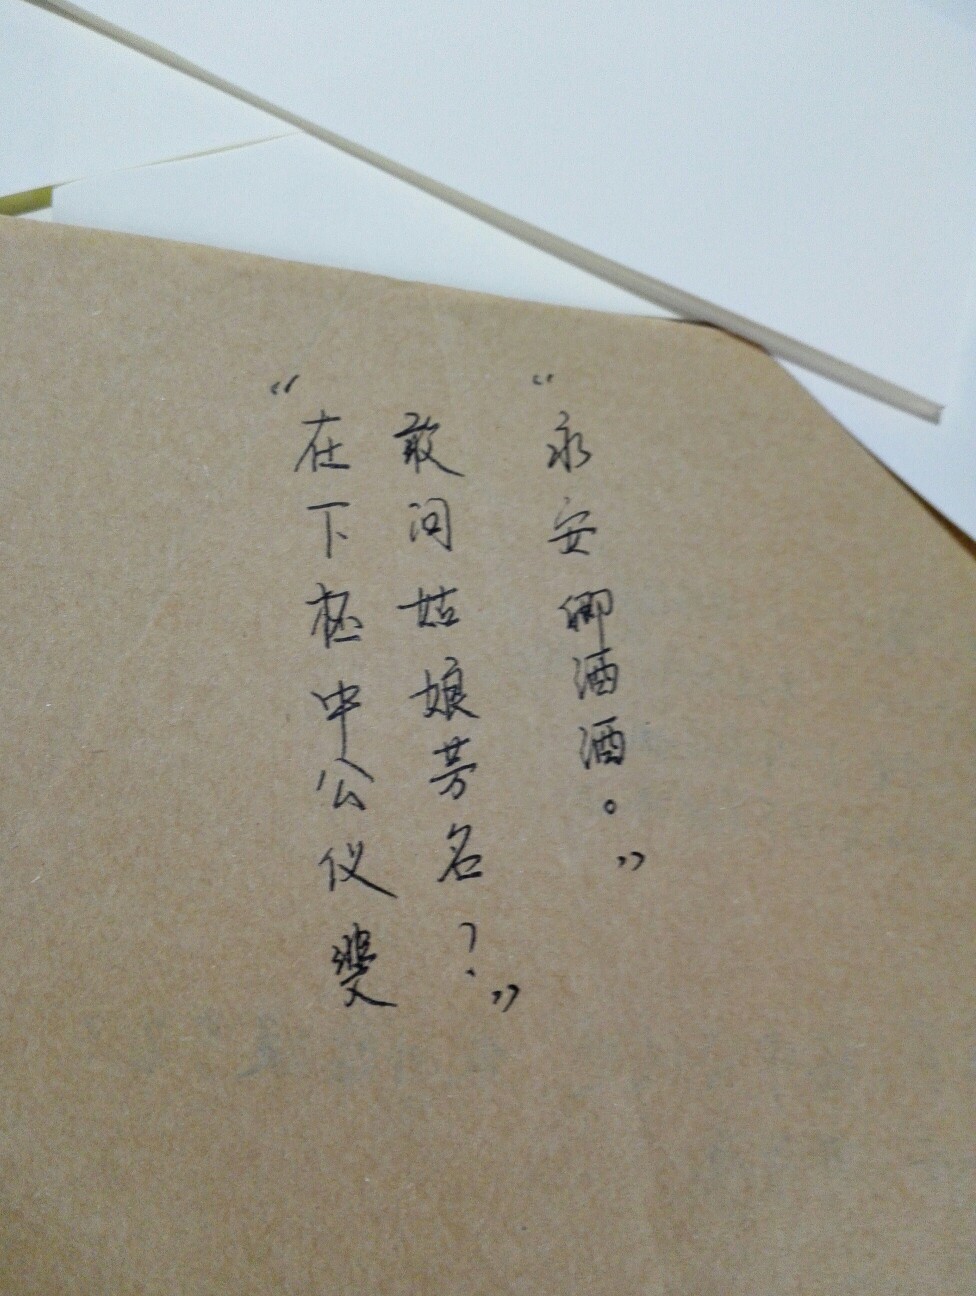 “在下柸中公仪斐
敢问姑娘芳名？”
“永安卿酒酒。”